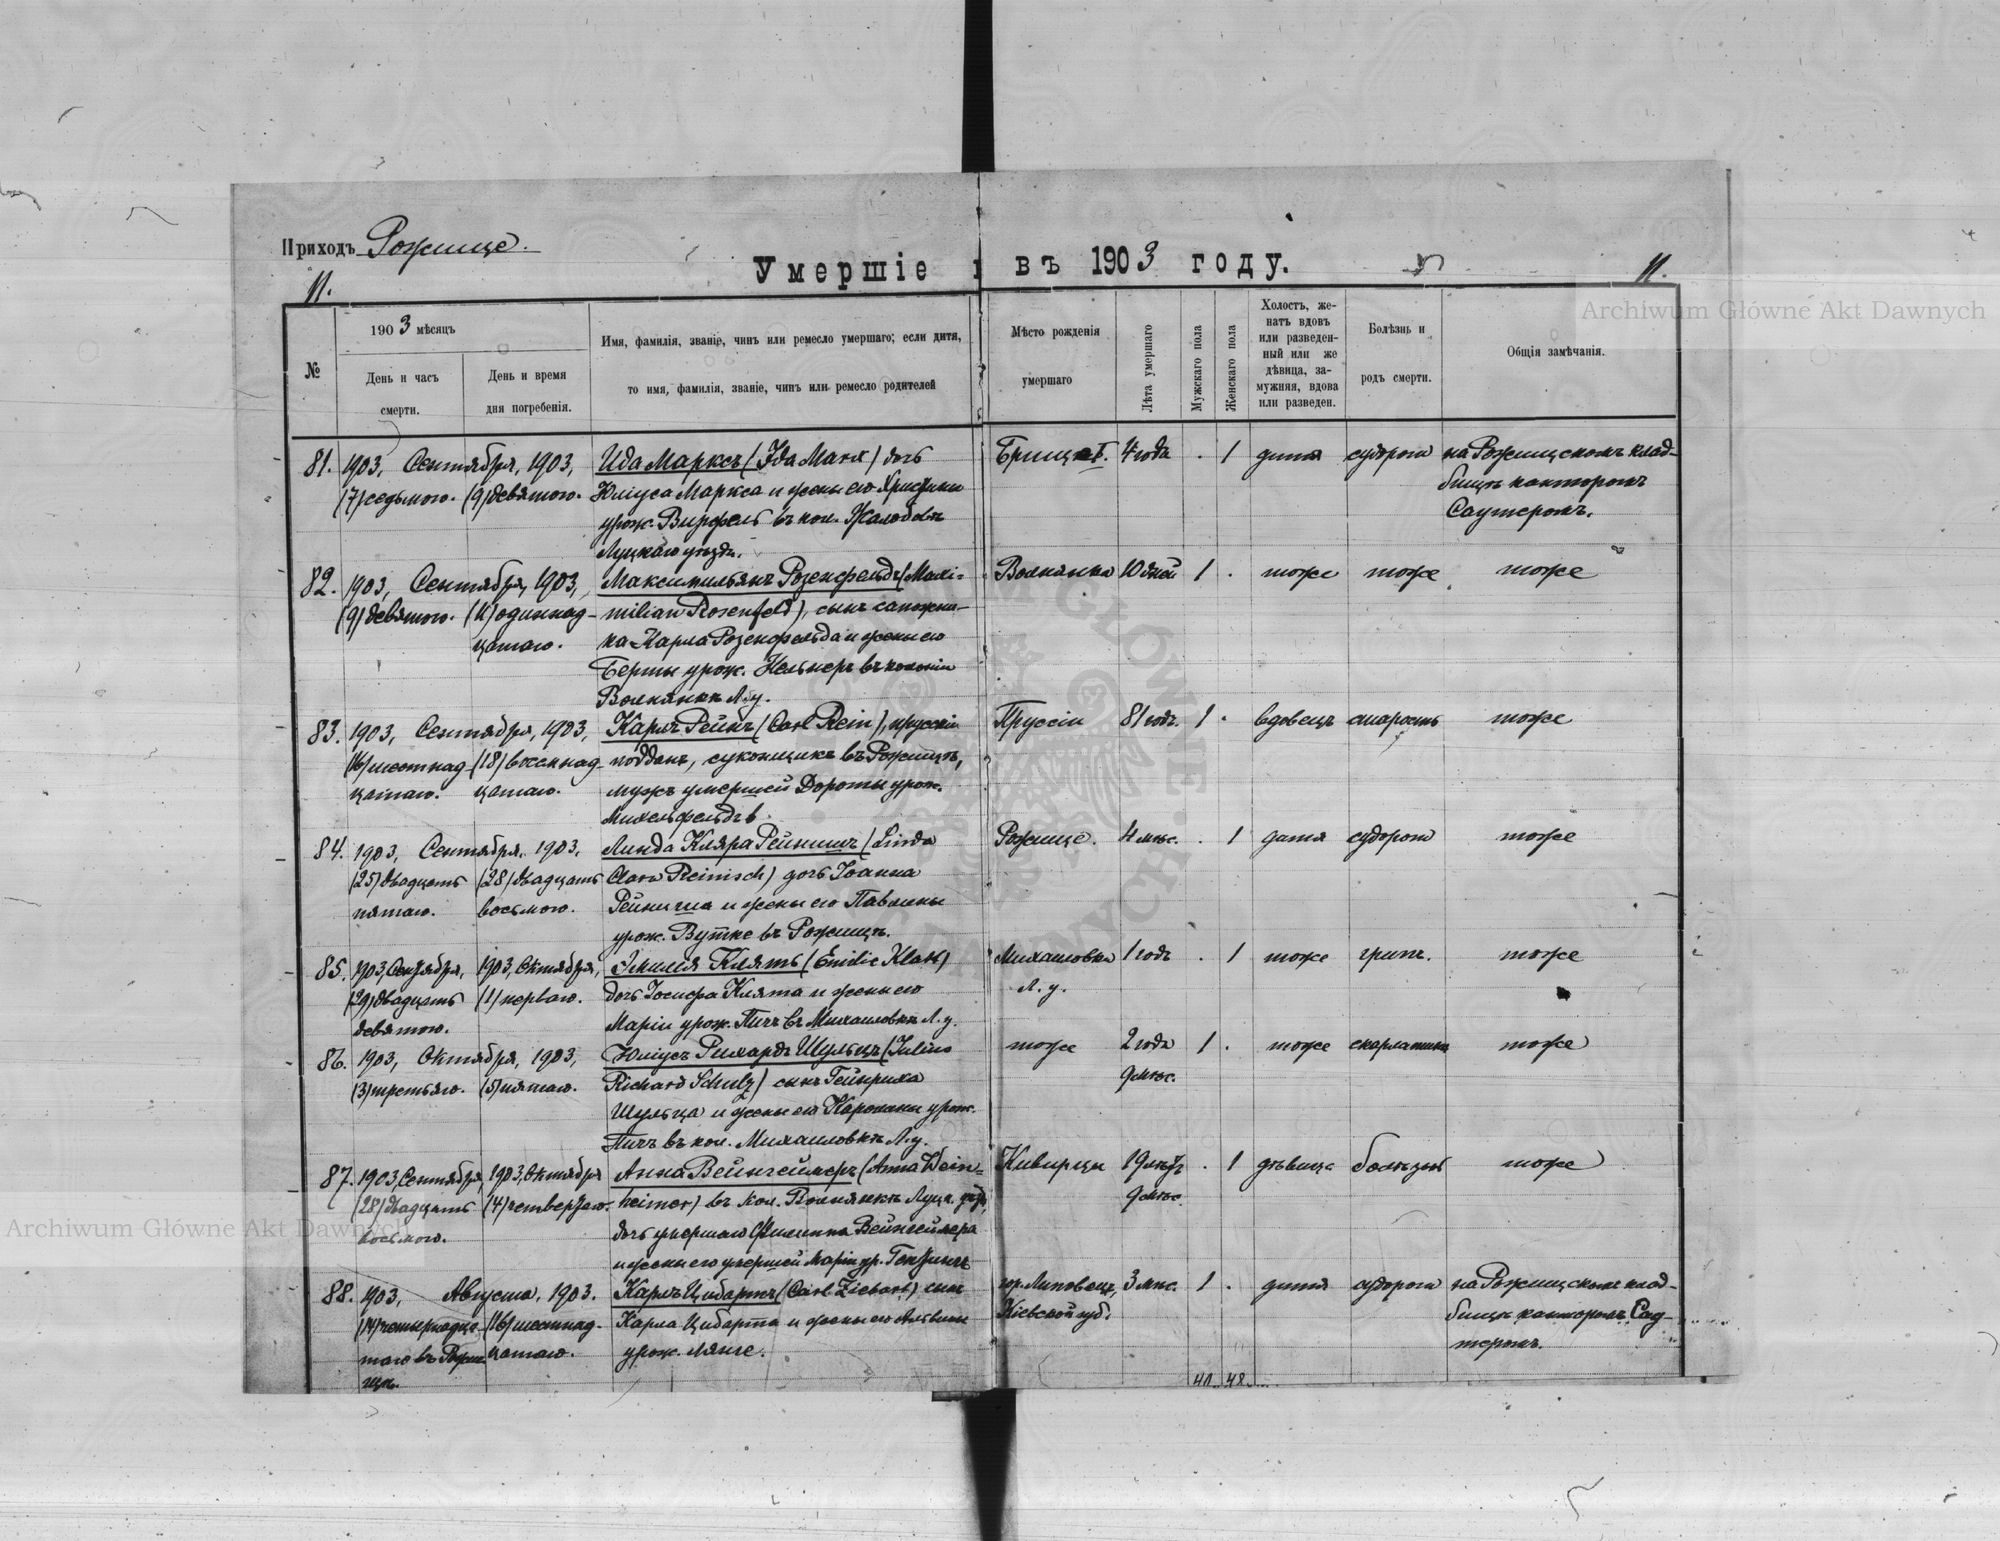 Приходъ Рожище.
Умершіе въ 1903 году.
11.
11.
№
1903 мѣсяцъ
День и часъ
смерти.
День и время
дня погребенія.
Имя, фамилія, званіе, чинъ или ремесло умершаго; если дитя,
то имя, фамилія, званіе, чинъ или ремесло родителей
Мѣсто рожденія
умершаго
Лѣта умершаго
Мужскаго пола
Женскаго пола
Холостъ, же-
натъ вдовъ
или разведен-
ный или же
дѣвица, за-
мужняя, вдова
или разведен.
Болѣзнь и
родъ смерти.
Общія замѣчанія.
81. 1903, Сентября, 1903, Ида Марксъ (Ida Marx) дочь 4 года . 1 дитя судороги на Рожищскомъ клад-
(7) седьмого. (9) девятого. Юліуса Маркса и жены его Христины бищѣ канторомъ
урож. Вирфель въ кол. Жалобовъ Саутеромъ.
Луцкаго уѣзда.
82. 1903, Сентября, 1903, Максимильянъ Розенфельдъ (Maxi- Волнянка 10 дней 1 . тоже тоже тоже
(9) девятого. (11) одиннад- milian Rosenfeld), сынъ сапожни-
цатаго. ка Карла Розенфельда и жены его
Берты урож. Нельнеръ въ колоніи
Волнянкѣ Л.у.
83. 1903, Сентября, 1903, Карлъ Рейнъ (Carl Rein), прусскій Пруссіи 81 годъ. 1 . вдовецъ старость тоже
(16) шестнад- (18) восемнад- поддан., суконщикъ въ Рожищѣ,
цатаго. цатаго. мужъ умершей Дороты урож.
Михельфельдъ.
84. 1903, Сентября, 1903, Линда Клара Рейнишъ (Linda Рожище. 4 мѣс. . 1 дитя судороги тоже
(25) двадцать (28) двадцать Clara Reinisch) дочь Іоанна
пятаго. восьмого. Рейниша и жены его Павлины
урож. Вутке въ Рожищѣ.
85. 1903, Сентября, 1903, Октября, Эмилія Клятъ (Emilie Klatt) Михаиловка 1 годъ . 1 тоже грипъ. тоже
(29) двадцать (1) перваго. дочь Іосифа Клята и жены его Л.у.
девятого. Маріи урож. Пичъ въ Михаиловкѣ Л.у.
86. 1903, Октября, 1903, Юліусъ Рихардъ Шульцъ (Julius тоже 2 года 1 . тоже скарлатина тоже
(3) третьяго. (5) пятаго. Richard Schulz) сынъ Гейнриха 9 мѣс.
Шульца и жены его Каролины урож.
Пичъ въ кол. Михаиловкѣ Л.у.
87. 1903, Сентября, 1903, Октября Анна Вейнгеймеръ (Anna Wein- Киверцы 19 лѣтъ . 1 дѣвица болѣзнь тоже
(28) двадцать (4) четвертаго. heimer) въ кол. Волнянкѣ Луцк. уѣзд., 9 мѣс.
восьмого. дочь умершаго Филиппа Вейнгеймера
и жены его умершей Маріи ур.
88. 1903, Августа, 1903. Карлъ Цибартъ (Carl Ziebart) сынъ гор. Липовецъ, 3 мѣс. 1 . дитя судороги на Рожищскомъ клад-
(14) четырнадца- (16) шестнад- Карла Цибарта и жены его Альвины Кіевской губ. бищѣ канторомъ Сау-
таго въ Рожи- цатаго. урож. Лянге. теромъ.
щѣ.
41. 48.
Archiwum Główne Akt Dawnych
Archiwum Główne Akt Dawnych